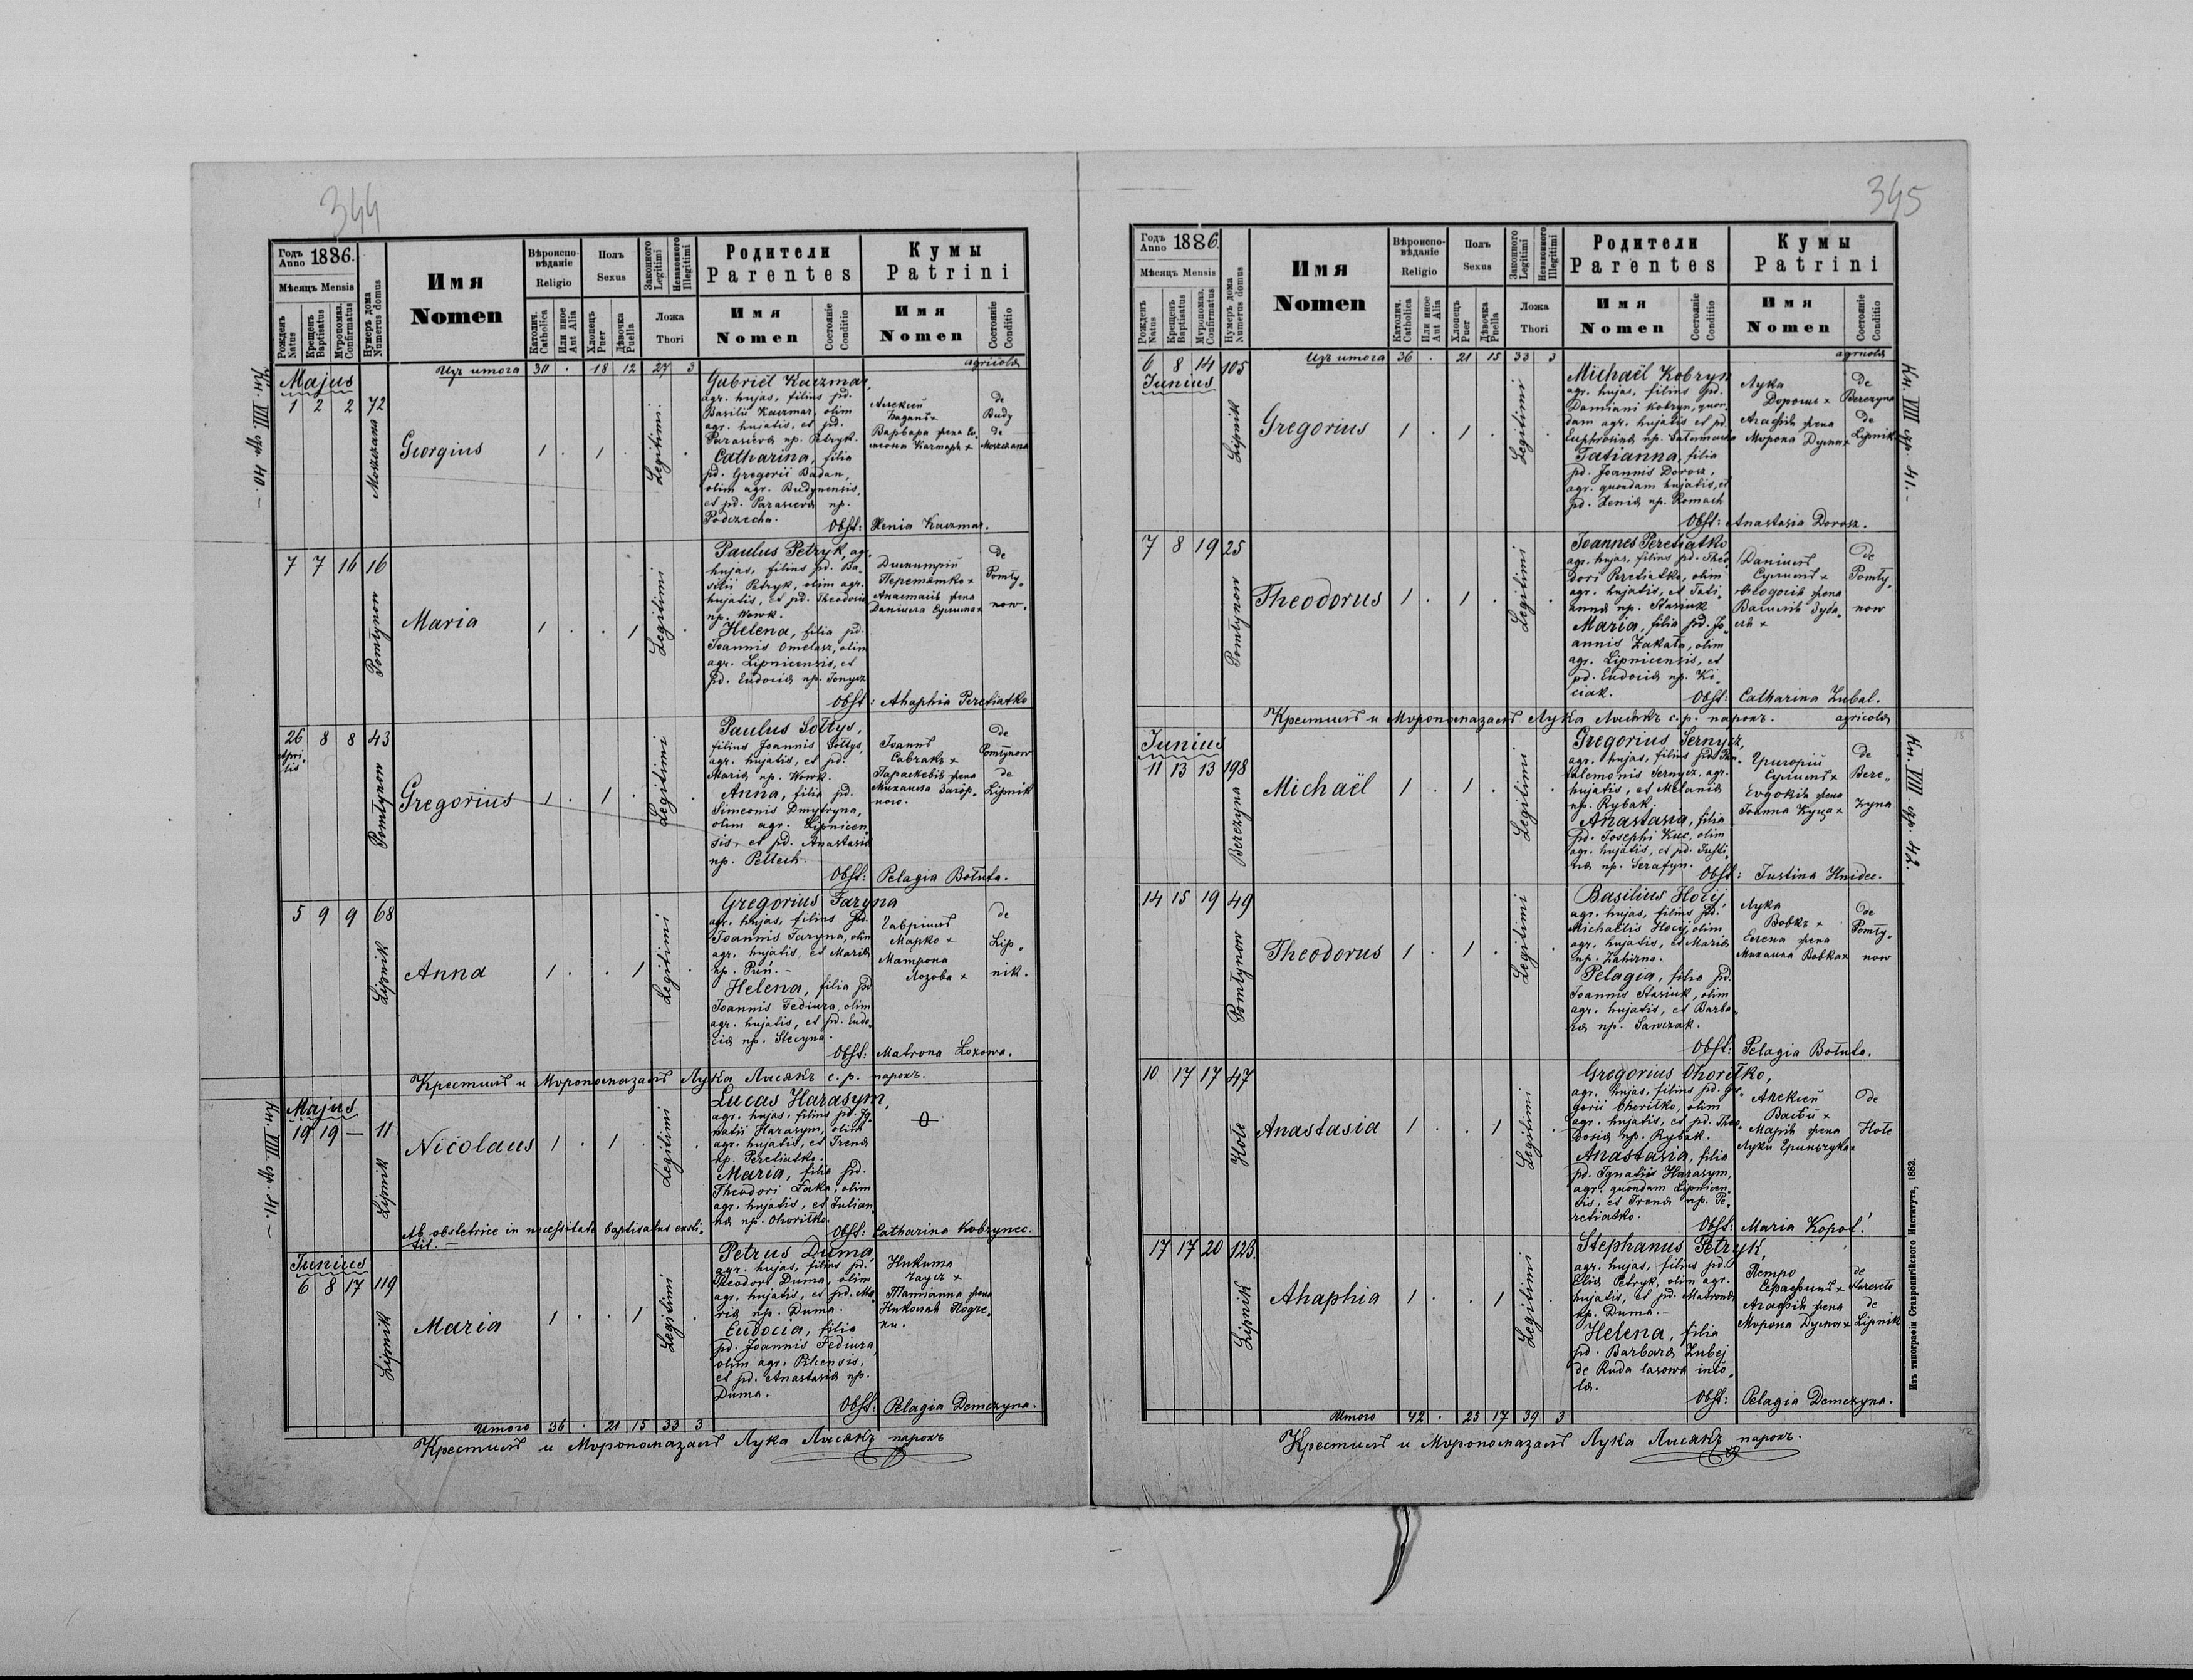 344
Годъ Anno 1886.
Мѣсяцъ Mensis
Рожденъ Natus
Крещенъ Baptisatus
Мѵропомаз. Confirmatus
Нумеръ дома Numerus domus
Имя
Nomen
Вѣроиспо-
вѣданіе
Religio
Католич. Catholica
Или иное Aut Alia
Полъ
Sexus
Хлопецъ Puer
Дѣвочка Puella
Законного Legitimi
Незаконного Illegitimi
Ложа
Thori
Родители
Parentes
Имя
Nomen
Состояніе Conditio
Кумы
Patrini
Имя
Nomen
Состояніе Conditio
Изъ итога 30 . 18 12 27 3
agricolæ
Кн. VIII. стр. 40. –
Majus
1 2 2 72
Georgius
1 . 1 .
Legitimi
Gabriel Kaczmar,
agr. hujas, filius pd.
Basilii Kaczmar, olim
agr. hujatis, et pd.
Parasceva np. Petryk.
Catharina, filia
pd. Gregorii Badan,
olim agr. Budynensis,
et pd. Parasceva np.
Podczecha.
Алексій
Баданъ +
Варвара жена
Качмаръ +
de
Budy
de
Moszczana
Obst: Xenia Kaczmar.
7 7 16 16
Pomłynow
Maria
1 . . 1
Legitimi
Paulus Petryk, agr.
hujas, filius pd. Ba-
silii Petryk, olim agr.
hujatis, et pd. Theodosia
np. Wowk.
Helena, filia pd.
Joannis Omelasz, olim
agr. Lipnicensis, et
pd. Eudocia np. Jonycz
Димитрій
Перетятко +
Анастасія жена
Даниила Сулима +
de
Pomły-
now.
Obst: Ahaphia Peretiatko
26 8 8 43
Apri-
lis
Pomłynow
Gregorius
1 . 1 .
Legitimi
Paulus Sołtys,
filius Joannis Sołtys,
agr. hujatis, et pd.
Maria np. Wowk.
Anna, filia pd.
Simeonis Dmytryna,
olim agr. Lipnicen-
sis, et pd. Anastasia
np. Pellech.
Іоаннъ
Савчакъ +
Параскевія жена
Михаила
de
Pomłynow
de
Lipnik
Obst: Pelagia Bołuta.
5 9 9 68
Lipnik
Anna
1 . . 1
Legitimi
Gregorius Taryna
agr. hujas, filius pd.
Joannis Taryna, olim
agr. hujatis, et Maria
np. Puń. –
Helena, filia pd
Joannis Fediura, olim
agr. hujatis, et pd. Eudo-
cia np. Stecyna.
Гавріилъ
Марко +
Матрона
Лозова +
de
Lip-
nik.
Obst: Matrona Łozowa.
Крестилъ и Мѵропомазалъ Лука Лисякъ с. р. парохъ.
Кн. VIII. стр. 41. –
Majus
19 19 – 11
Lipnik
Nicolaus
1 . 1 .
Legitimi
Lucas Harasym,
agr. hujas, filius pd. Ig-
natii Harasym, olim
agr. hujatis, et Irena
np. Peretiatko.
Maria, filia pd.
Theodori Łaka, olim
agr. hujatis, et Julian-
na np. Ohoriłko.
Ab obstetrice in necessitate baptisatus exsti-
tit. –
Obst: Catharina Kobrynec.
Junius
6 8 17 119
Lipnik
Maria
1 . . 1
Legitimi
Petrus Duma,
agr. hujas, filius pd.
Theodori Duma, olim
agr. hujatis, et pd. Ma-
ria np. Duma.
Eudocia, filia
pd. Joannis Fediura,
olim agr. Piliensis,
et pd. Anastasia np.
Duma.
Никита
Заяцъ +
Татіанна жена
Николая
Obst: Pelagia Demczyna.
Итого 36 . 21 15 33 3
Крестилъ и Мѵропомазалъ Лука Лисякъ парохъ
345
Годъ Anno 1886.
Мѣсяцъ Mensis
Рожденъ Natus
Крещенъ Baptisatus
Мѵропомаз. Confirmatus
Нумеръ дома Numerus domus
Имя
Nomen
Вѣроиспо-
вѣданіе
Religio
Католич. Catholica
Или иное Aut Alia
Полъ
Sexus
Хлопецъ Puer
Дѣвочка Puella
Законного Legitimi
Незаконного Illegitimi
Ложа
Thori
Родители
Parentes
Имя
Nomen
Состояніе Conditio
Кумы
Patrini
Имя
Nomen
Состояніе Conditio
Изъ итога 36 . 21 15 33 3
agricolæ
Кн. VIII стр. 41. –
6 8 14 105
Junius
Lipnik
Gregorius
1 . 1 .
Legitimi
Michaël Kobryn
agr. hujas, filius pd.
Damiani Kobryn, quon-
dam agr. hujatis et pd.
Euphrosina np.
Tatianna, filia
pd. Joannis Dorosz,
agr. quondam hujatis, et
pd. Xenia np. Romach
Лука
Дорошъ +
Агафія жена
Мирона Дума +
de
Berezyna
de
Lipnik
Obst: Anastasia Dorosz.
7 8 19 25
Pomłynow
Theodorus
1 . 1 .
Legitimi
Joannes Peretiatko
agr. hujas, filius pd. Theo-
dori Peretiatko, olim
agr. hujatis, et Tati-
anna np. Stasiuk
Maria, filia pd. Jo-
annis Zakała, olim
agr. Lipnicensis, et
pd. Eudocia np. Ki-
ciak.
Даніилъ
Сулимъ +
Ѳеодосія жена
Василія Зуба-
ля +
de
Pomły-
now
Obst: Catharina Zubal.
Крестилъ и Мѵропомазалъ Лука Лисякъ с. р. парохъ. agricolæ
Кн. VIII стр. 42.
Junius
11 13 13 198
Berezyna
Michaël
1 . 1 .
Legitimi
Gregorius Sernycz,
agr. hujas, filius pd. Pan-
talemonis Sernycz, agr.
hujatis, et Melania
np. Rybak.
Anastasia, filia
pd. Josephi Kuc, olim
agr. hujatis, et pd. Justi-
na np. Serafyn.
Григорій
Евдокія жена
Іоанна Куца +
de
Bere-
zyna
Obst: Justina Hnidec.
14 15 19 49
Pomłynow
Theodorus
1 . 1 .
Legitimi
Basilius Hocij,
agr. hujas, filius pd.
Michaelis Hocij, olim
agr. hujatis, et Maria
np. Zahirna.
Pelagia, filia pd.
Joannis Stasiuk, olim
agr. hujatis, et Barba-
ra np. Sawczak.
Лука
Вовкъ +
Елена жена
Михаила Вовка +
de
Pomły-
now
Obst: Pelagia Bołuta.
10 17 17 47
Hołe
Anastasia
1 . . 1
Legitimi
Gregorius Ohoriłko,
agr. hujas, filius pd. Gre-
gorii Ohoriłko, olim
agr. hujatis, et pd. Theo-
dosia np. Rybak.
Anastasia, filia
pd. Ignatii Harasym,
agr. quondam Lipnicen-
sis, et Irena np. Pe-
retiatko.
Алексій
Марія жена
Луки
de
Hołe
Obst: Maria Kopot!
17 17 20 123
Lipnik
Ahaphia
1 . . 1
Legitimi
Stephanus Petryk,
agr. hujas, filius pd.
Elia Petryk, olim agr.
hujatis, et pd. Matrona
np. Duma. –
Helena, filia
pd. Barbara Zubej
de Ruda lasowa inco-
la.
Петро
Серафинъ +
Агафія жена
Мирона Дума +
de
Stareseło
de
Lipnik
Obst: Pelagia Demczyna.
Итого 42 . 25 17 39 3
Крестилъ и Мѵропомазалъ Лука Лисякъ парохъ.
Изъ типографіи Ставропигійского Института, 1882.